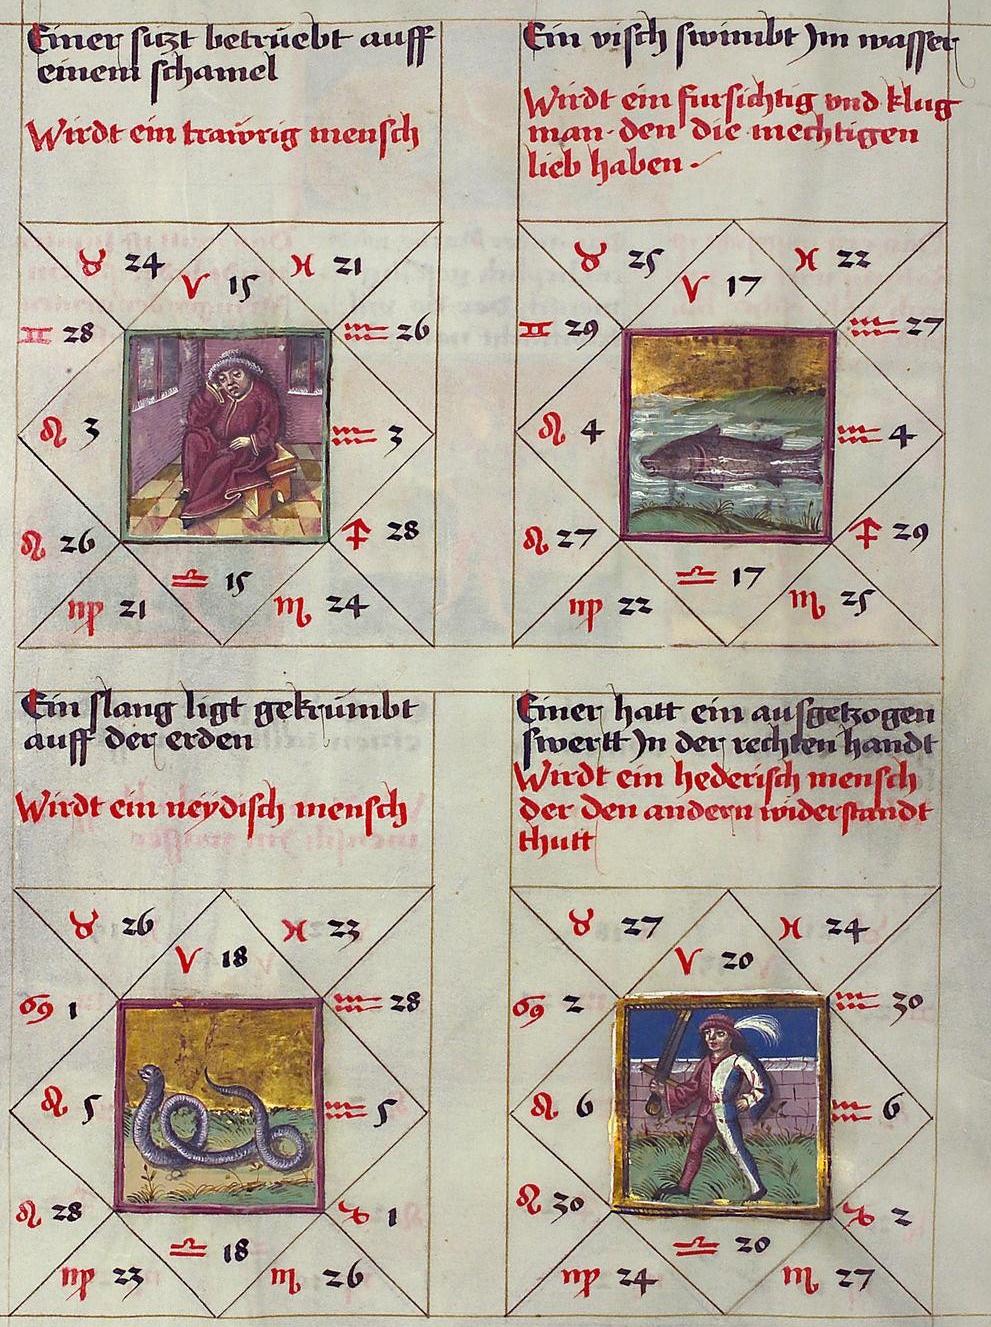 Einer sitzt betrüebt auff
einem schamel
Wirdt ein trawrig mensch
♉ 24
♈ 15
♓ 21
♊ 28
♒ 26
♌ 3
♒ 3
♌ 26
♐ 28
♎ 15
♍ 21
♏ 24
Ein visch swimbt Jm wasser
Wirdt ein fursichtig vnd klug
man · den die mechtigen
lieb haben
♉ 25
♈ 17
♓ 22
♊ 29
♒ 27
♌ 4
♒ 4
♌ 27
♐ 29
♎ 17
♍ 22
♏ 25
Ein slang ligt gekrümbt
auff der erden
Wirdt ein neÿdisch mensch
♉ 26
♈ 18
♓ 23
♋ 1
♒ 28
♌ 5
♒ 5
♌ 28
♑ 1
♎ 18
♍ 23
♏ 26
Einer hatt ein ausgetzogen
swertt Jn der rechten handt
Wirdt ein hederisch mensch
der den andern widerstandt
thutt
♉ 27
♈ 20
♓ 24
♋ 2
♒ 30
♌ 6
♒ 6
♌ 30
♑ 2
♎ 20
♍ 24
♏ 27